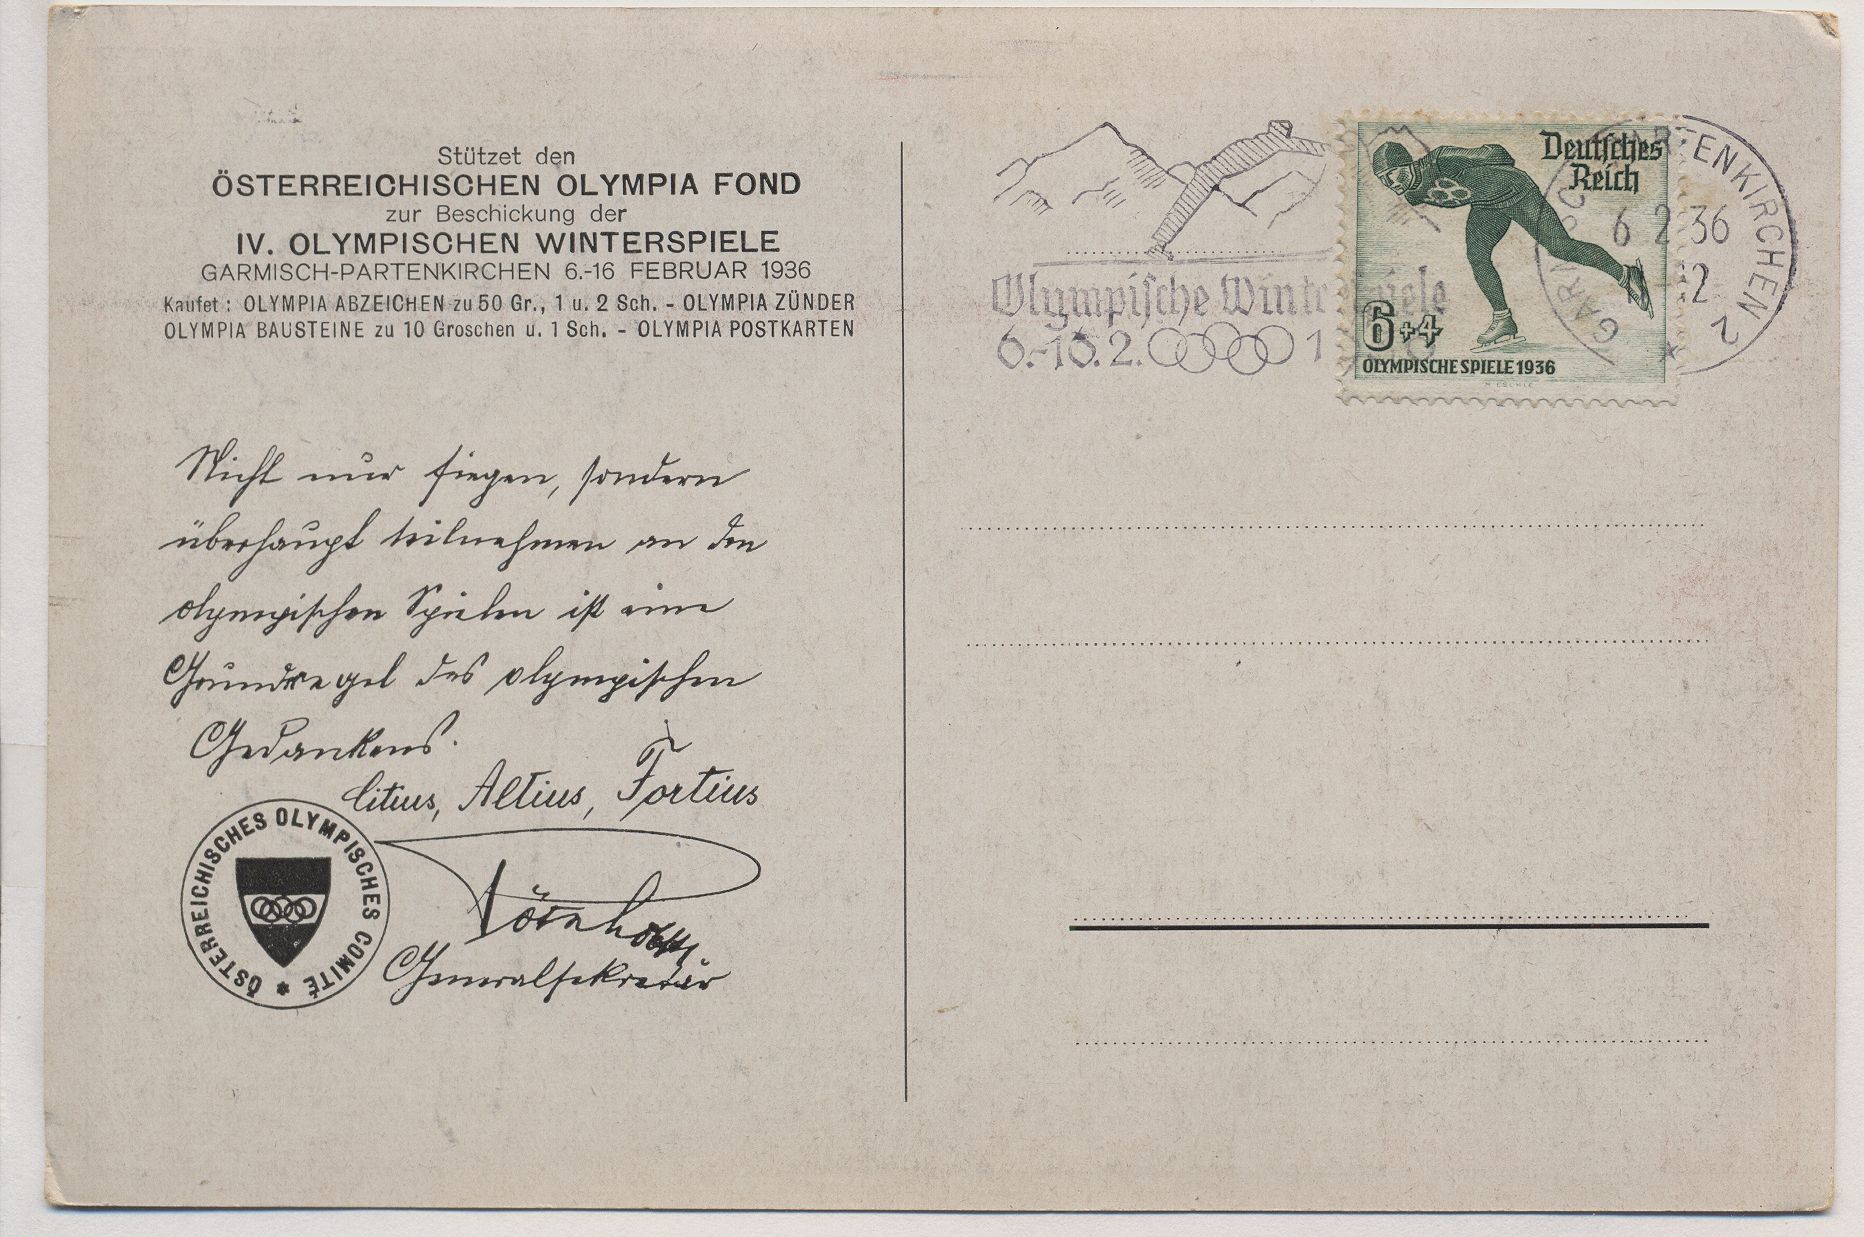 Stützet den
ÖSTERREICHISCHEN OLYMPIA FOND
zur Beschickung der
IV. OLYMPISCHEN WINTERSPIELE
GARMISCH-PARTENKIRCHEN 6.-16 FEBRUAR 1936
Kaufet : OLYMPIA ABZEICHEN zu 50 Gr., 1 u. 2 Sch. - OLYMPIA ZÜNDER
OLYMPIA BAUSTEINE zu 10 Groschen u. 1 Sch. - OLYMPIA POSTKARTEN
Nicht nur siegen, sondern
überhaupt teilnehmen an den
olympischen Spielen ist eine
Grundregel des olympischen
Gedankens.
Citius, Altius, Fortius
Generalsekretär
ÖSTERREICHISCHES OLYMPISCHES COMITÉ *
Olympische Winterspiele
6.-16.2. 1
Deutsches
Reich
6+4
OLYMPISCHE SPIELE 1936
GARMISCH-PARTENKIRCHEN 2
6 2 36